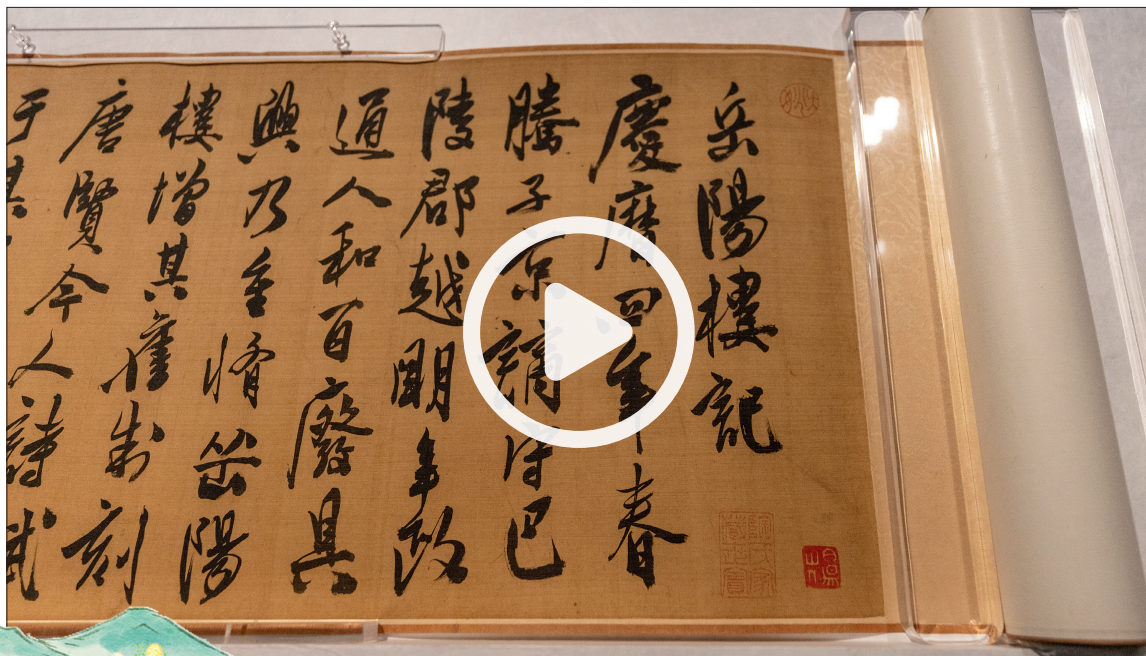 岳陽樓記
慶曆四年春
騰子京謫守巴
陵郡越明年政
通人和百廢具
興乃重脩岳陽
樓增其舊制刻
唐賢今人詩賦
于其